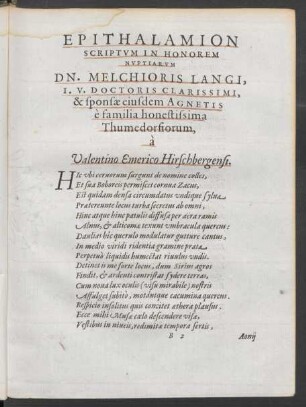 EPITHALAMION
SCRIPTVM IN HONOREM
NVPTIARVM
DN. MELCHIORIS LANGI,
I. V. DOCTORIS CLARISSIMI,
& sponsæ eiusdem AGNETIS
è familia honestissima
Thumedorfiorum,
à
Valentino Emerico Hirschbergensi.
HIc vbi cernorum surgunt de nomine colles,
Et sua Boboreis permiscet cornua Zacus,
Est quidam densa circumdatus vndique sylua
Prætereunte locus turba secretus ab omni,
Hinc atque hinc patulis diffusa per aëra ramis
Alnum, & alticoma texunt vmbracula quercus:
Daulias hîc querulo modulatur gutture cantus.
In medio viridi ridentia gramine prata
Perpetuò liquidis humectat riuulus vndis.
Detinet is me forte locus, dum Sirius agros
Findit, & ardenti contristat sydere terras,
Cum noua lux oculis (visu mirabile) nostris
Affulget subitò, motántque cacumina quercus.
Respicio insolitus quis concitet æthera plausus.
Ecce mihi Musæ cælo descendere visæ,
Vestibus in niueis, redimitæ tempora sertis,
B 2
Aonij